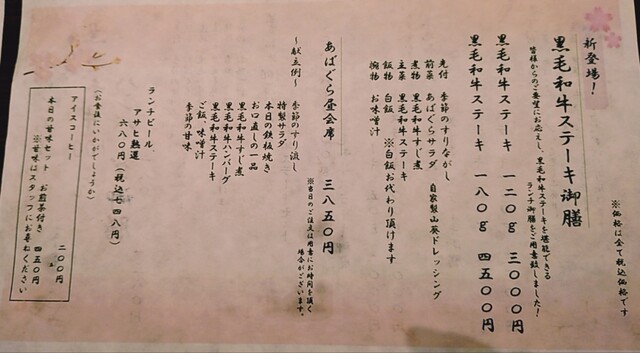 ※価格は全て税込価格です
新登場！
黒毛和牛ステーキ御膳
皆様からのご要望にお応えし、黒毛和牛ステーキを堪能できる
ランチ御膳をご用意致しました！
黒毛和牛ステーキ 一二〇g 三〇〇〇円
黒毛和牛ステーキ 一八〇g 四五〇〇円
先付 季節のすりながし
前菜 あばぐらサラダ 自家製山葵ドレッシング
煮物 黒毛和牛すじ煮
主菜 黒毛和牛ステーキ
飯物 白飯 ※白飯お代わり頂けます
椀物 お味噌汁
あばぐら昼会席 三八五〇円
※当日のご注文は用意にお時間を頂く
場合がございます。
～献立例～
季節のすり流し
特製サラダ
本日の鉄板焼き
お口直しの一品
黒毛和牛すじ煮
黒毛和牛ハンバーグ
黒毛和牛ステーキ
ご飯、味噌汁
季節の甘味
ランチビール
アサヒ熟選
六八〇円（税込七四八円）
（お食後にいかがでしょうか）
アイスコーヒー 二〇〇円
本日の甘味セット お煎茶付き 四五〇円
※甘味はスタッフにお尋ねください